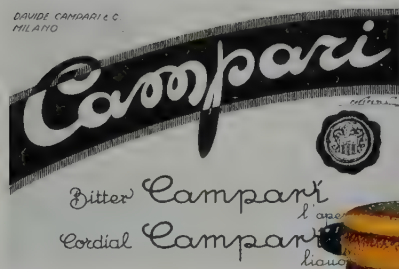 DAVIDE CAMPARI & C.
MILANO
Campari
Bitter Campari
Cordial Campari